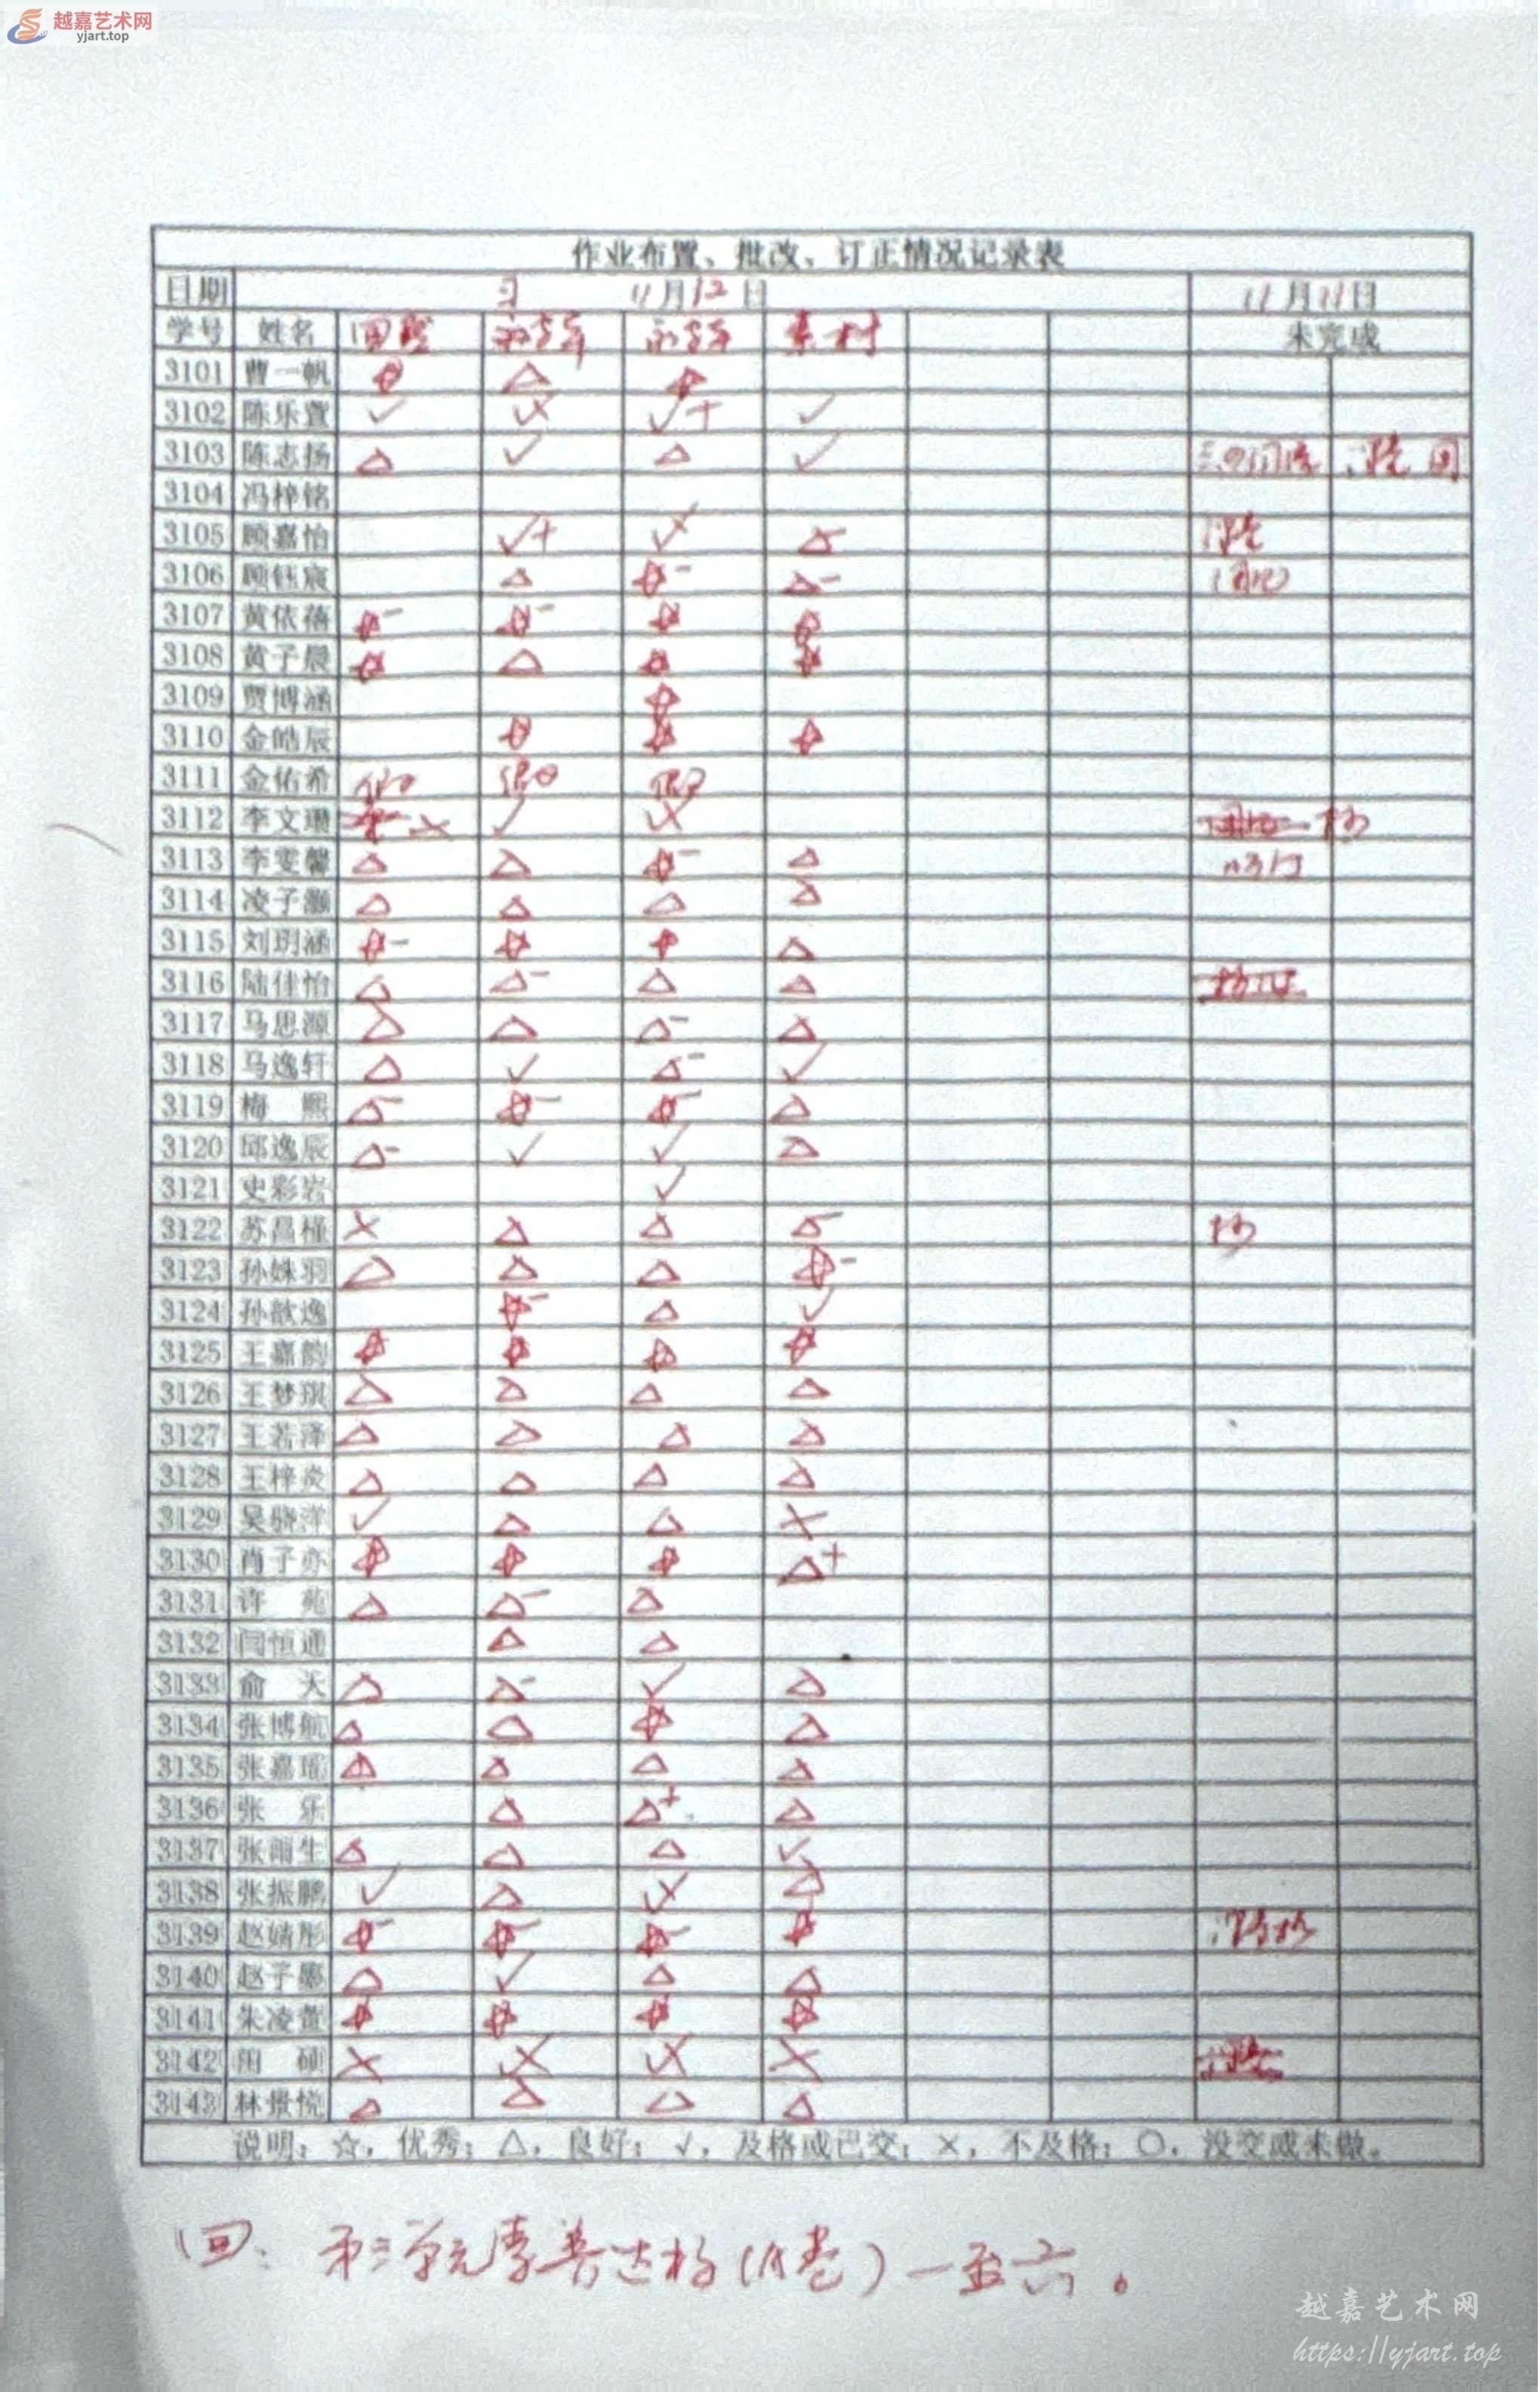 越嘉艺术网
yjart.top
作业布置、批改、订正情况记录表
日期 11月12日 11月11日
学号 姓名 素材 未完成
3101 曹一帆 △ ☆
3102 陈乐萱 √ √+ √
3103 陈志扬 △ √ △ √
3104 冯梓铭
3105 顾嘉怡 √+
3106 顾钰宸 △ ☆- △-
3107 黄依蓓 ☆- ☆- ☆ ☆
3108 黄子晨 ☆ △ ☆ ☆
3109 贾博涵 ☆
3110 金皓辰 ☆ ☆ ☆
3111 金佑希
3112 李文珊 √
3113 李雯馨 △ △ ☆- △
3114 凌子灏 △ △ △ △
3115 刘玥涵 ☆- ☆ ☆ △
3116 陆佳怡 △ △- △ △
3117 马思源 △ △ △- △
3118 马逸轩 △ √ △- √
3119 梅 熙 △- ☆- ☆- △
3120 邱逸辰 △- √ √ △
3121 史彩岩 √
3122 苏昌槿 × △ △ △-
3123 孙姝羽 △ △ △ ☆-
3124 孙歆逸 ☆- △ √
3125 王嘉韵 ☆ ☆ ☆ ☆
3126 王梦琪 △ △ △ △
3127 王若泽 △ △ △ △
3128 王梓炎 △ △ △ △
3129 吴骁洋 √ △ △ ×
3130 肖子亦 ☆ ☆ ☆ △+
3131 许 苑 △ △- △
3132 闫恒通 △ △
3133 俞 天 △ △- √ △
3134 张博航 △ △ ☆ △
3135 张嘉瑶 △ △ △
3136 张 乐 △ △+ △
3137 张雨生 △ △ △ √
3138 张振鹏 √ △ △
3139 赵婧彤 ☆- ☆- ☆- ☆
3140 赵子墨 △ √ △ △
3141 朱凌萱 ☆ ☆ ☆ ☆
3142 硕 × ×
3143 林景悦 △ △ △ △
说明：☆，优秀；△，良好；√，及格或已交；×，不及格；○，没交或未做。
回：第三单元素养达标（A卷）一至六。
越嘉艺术网
https://yjart.top